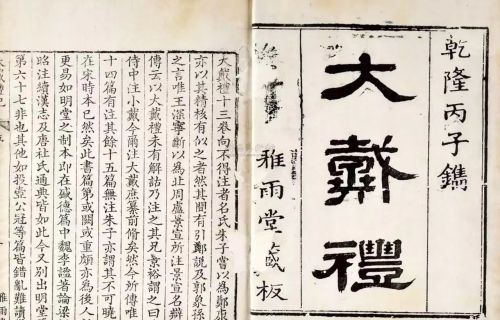 乾隆丙子鐫
大戴禮
雅雨堂藏板
大戴禮十三卷向不得注者名氏朱子嘗以為鄭康
亦以其精核有似之者然其間有引鄭說及郭象孫
之言唯王深寧斷以為北周盧景宣所注景宣名辯
傳云以大戴禮未有解詁乃注之其兄景裕謂之曰
侍中注小戴今爾注大戴庶纂前脩矣然今所傳唯
十四篇有注其餘十五篇無注朱子亦謂其不可曉
在宋時本已然矣此書篇第或闕或重頗亦為後人
更易如明堂之制本即在盛德篇中魏李謐著論梁
昭注續漢志及唐杜氏通典皆如此今又別出明堂
第六十七非也其他如投壺公冠等篇皆錯亂難讀
雅雨